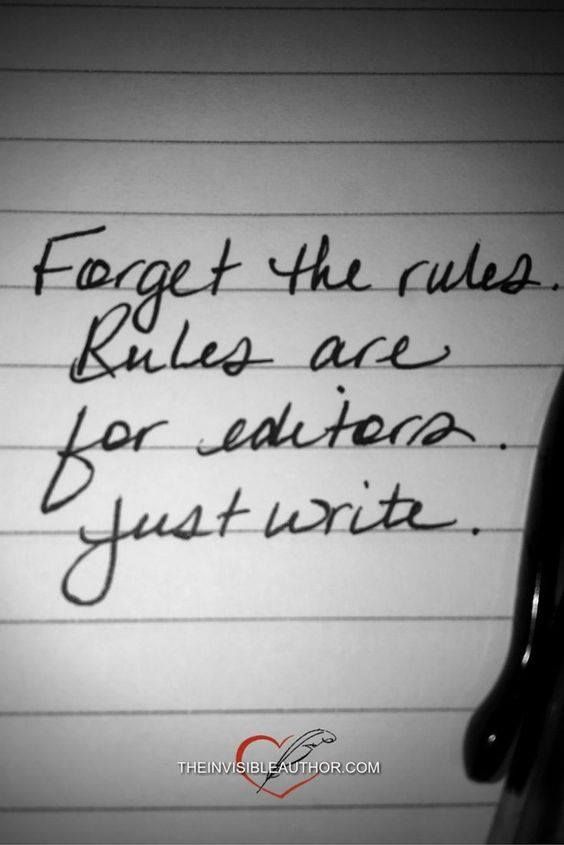 Forget the rules.
Rules are
for editors.
Just write.
THEINVISIBLEAUTHOR.COM